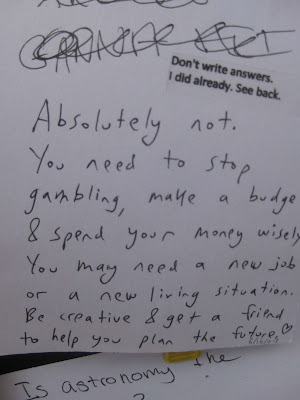 Don't write answers.
I did already. See back.
Absolutely not.
You need to stop
gambling, make a budge
& spend your money wisely
You may need a new job
or a new living situation.
Be creative & get a friend
to help you plan the future.♡
Is astronomy the
?